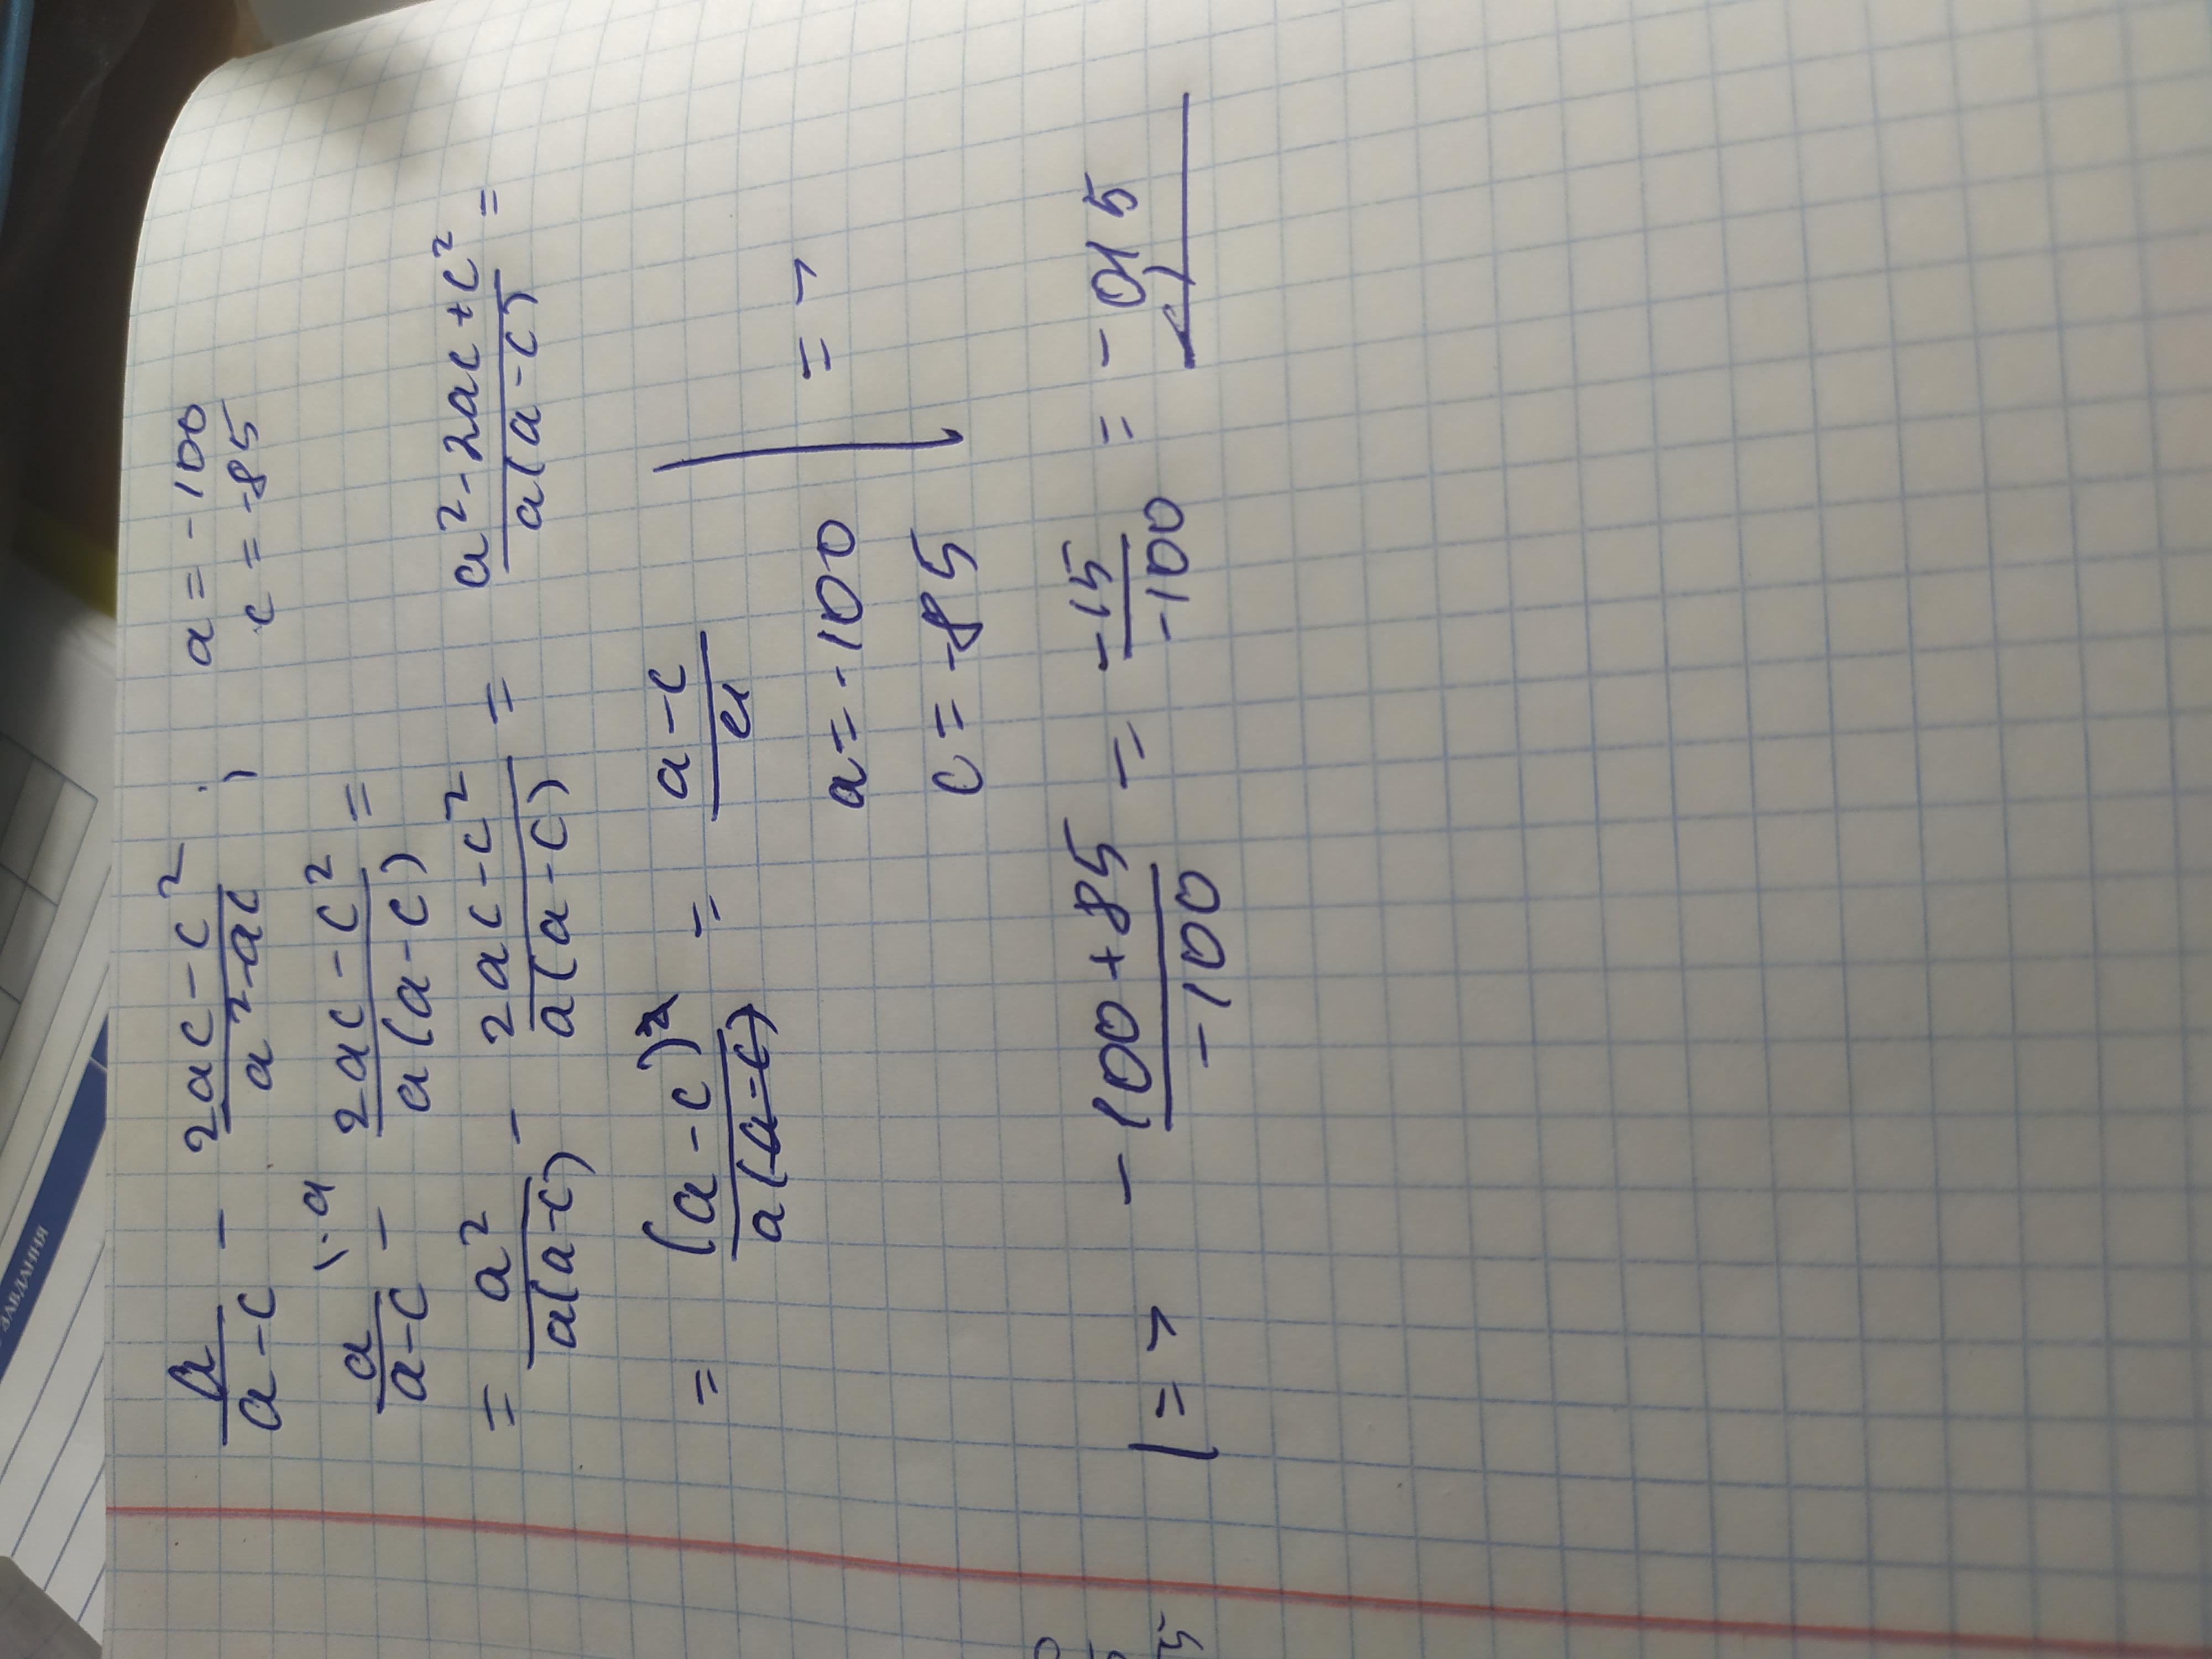 a/(a-c) - (2ac-c²)/(a²-ac) ; a=-100
c=-85
a/(a-c) \·a - (2ac-c²)/(a(a-c)) =
= a²/(a(a-c)) - (2ac-c²)/(a(a-c)) = (a²-2ac+c²)/(a(a-c)) =
= (a-c)²/(a(a-c)) = (a-c)/a
a=-100
c=-85 | =>
|=> (-100+85)/(-100) = (-15)/(-100) = -0,15
ЗАВДАННЯ